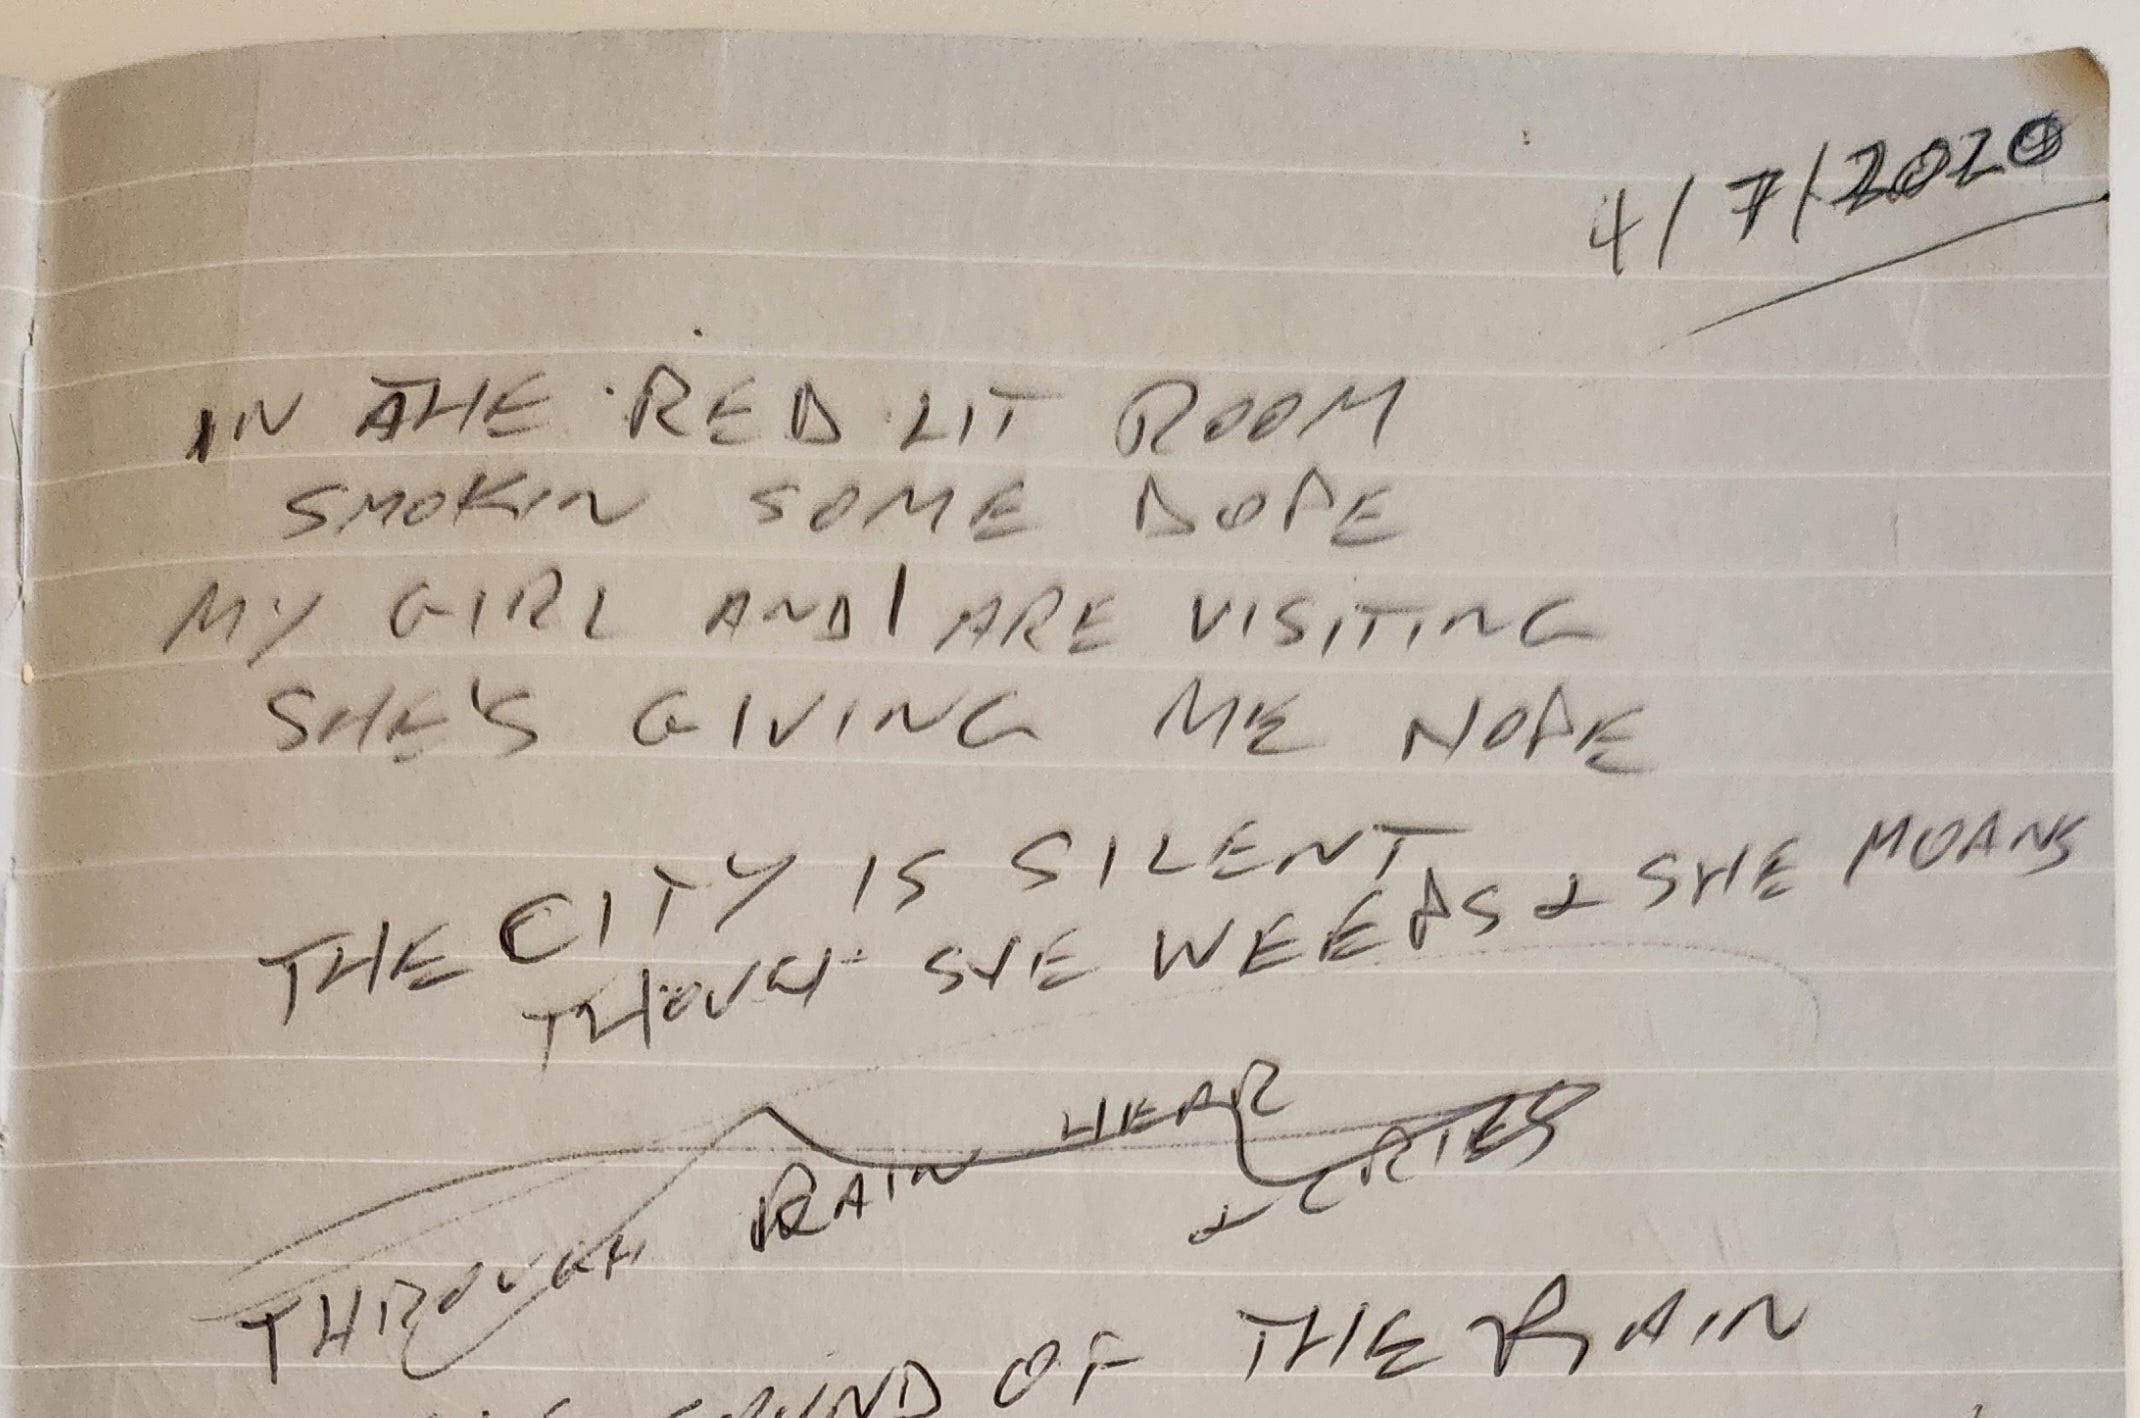 4/7/2020
IN THE RED LIT ROOM
SMOKIN SOME DOPE
MY GIRL AND I ARE VISITING
SHE'S GIVING ME NOPE
THE CITY IS SILENT
THOUGH SHE WEEPS & SHE MOANS
THROUGH RAIN HEAR & CRIES
SOUND OF THE RAIN